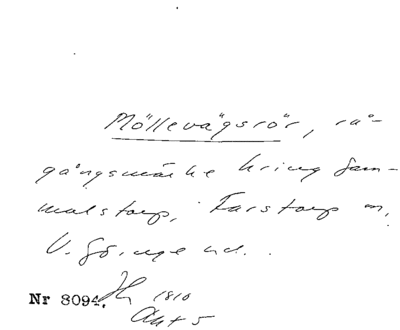 Möllevägsrör, rå-
gångsmärke kring Gam-
malstorp, Farstorp sn,
V. Göinge hd.
Nr 8094. Lh 1810
Akt 5